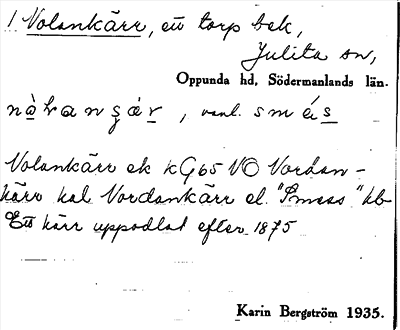 1 Volankärr, ett torp bek,
Julita sn,
Oppunda hd, Södermanlands län.
vanl. smés
Volankärr ek KG65 VO Nordan-
kärr kal Nordankärr el. "Smess" kb
Ett kärr uppodlat efter 1875
Karin Bergström 1935.